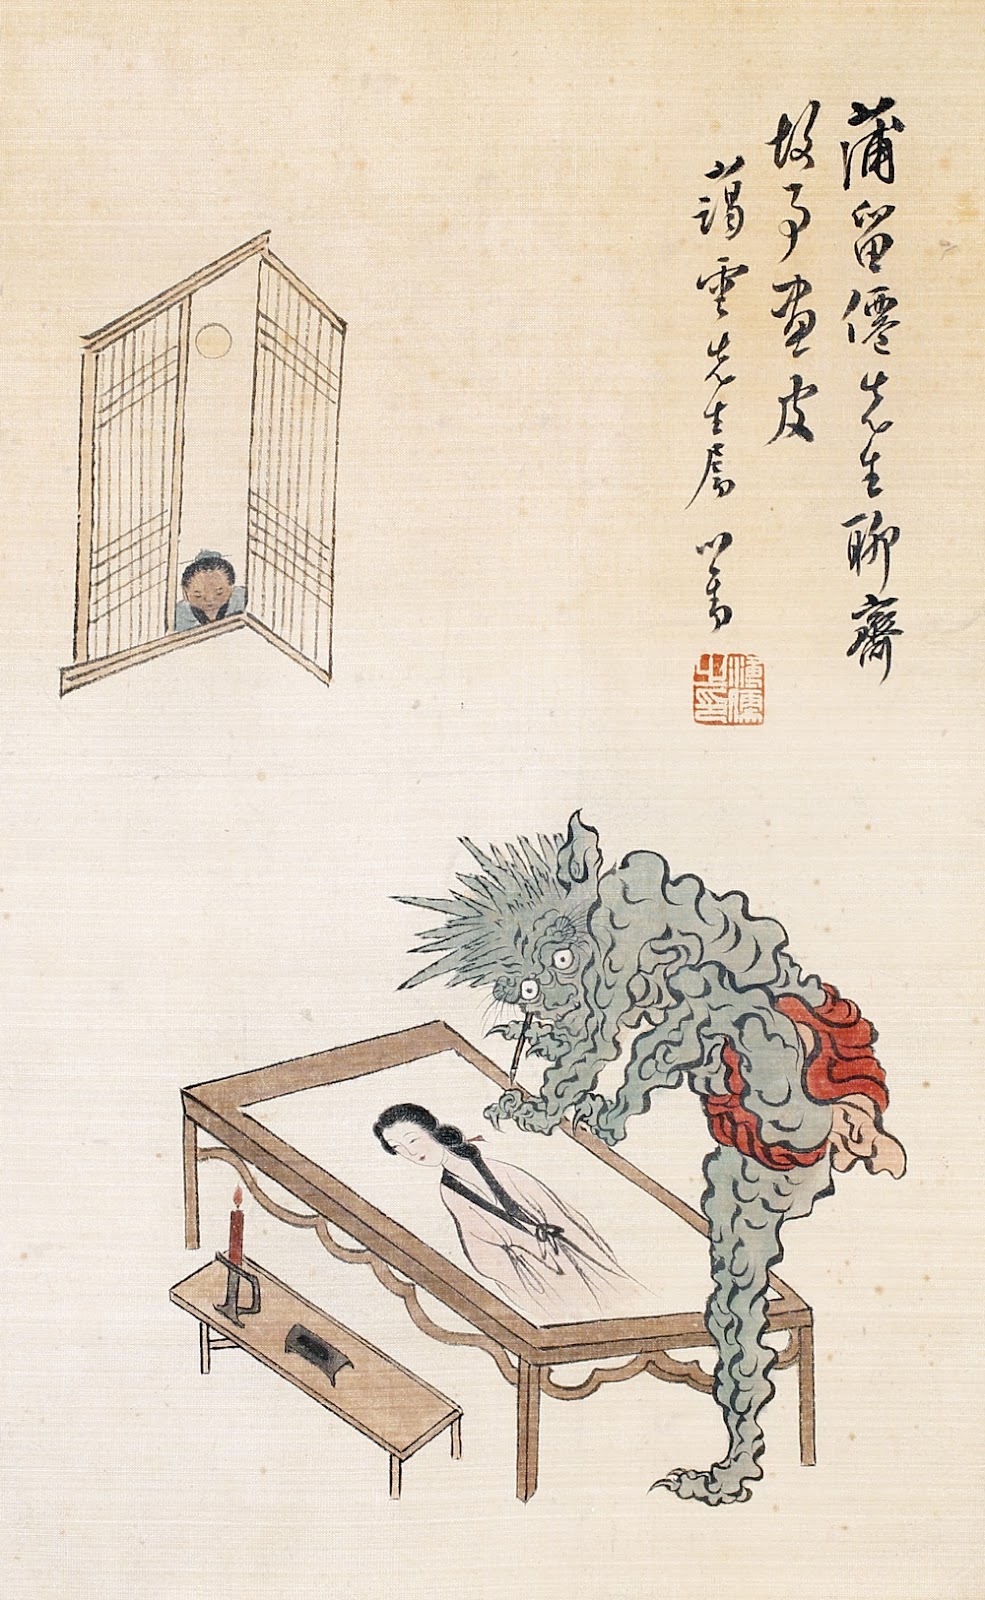 蒲留僊先生聊齋
故事畫皮
藹雲先生屬 心畬
溥儒之印